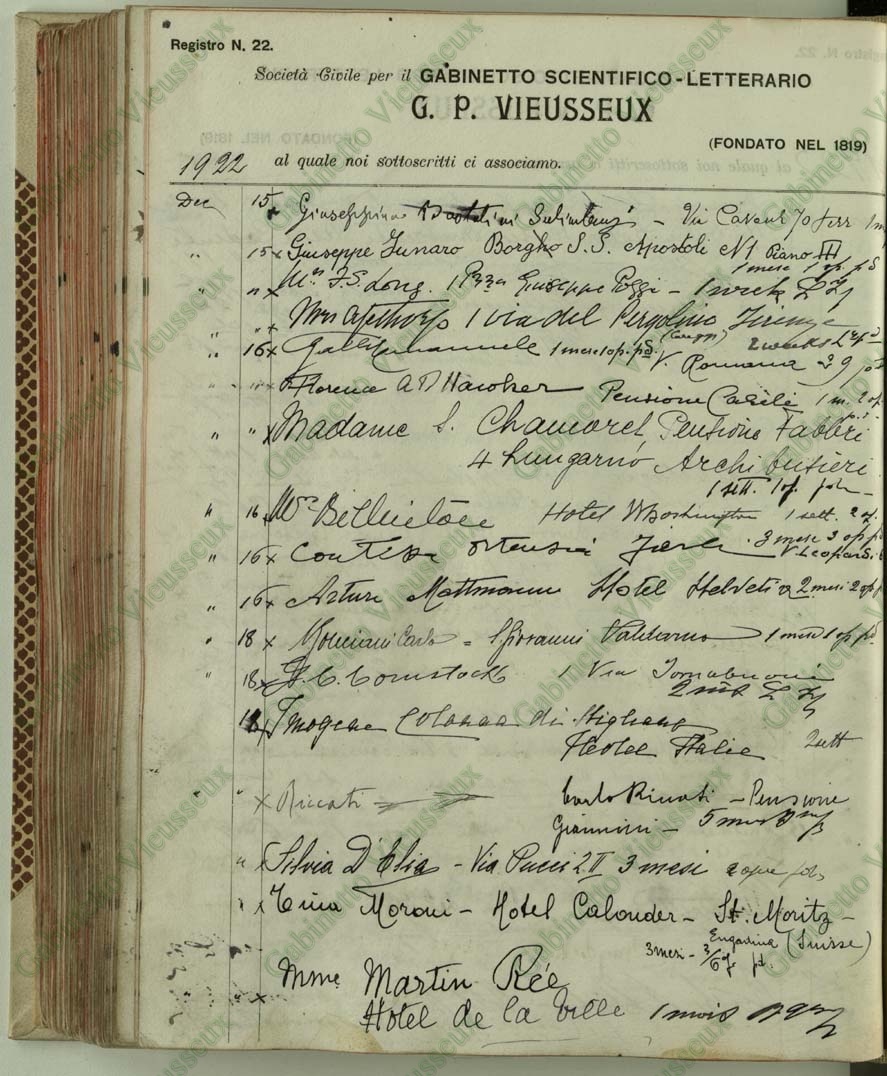 Registro N. 22.
Società Civile per il GABINETTO SCIENTIFICO-LETTERARIO
G. P. VIEUSSEUX
(FONDATO NEL 1819)
1922 al quale noi sottoscritti ci associamo.
Dec 15 x Giuseppina Via Cavour 70
" 15 x Giuseppe Funaro Borgho S.S. Apostoli N1 Piano III
1 mese 1 op. pd
" " x Mrs F.S. Long. 1 Pzza Giuseppe Poggi - 1 week
" " x Mrs 1 via del Pergolino Firenze
(Careggi) 2 weeks
" 16 x 1 mese 1 op. pd. V. Romana 39
" " x Florence A D Hawker Pensione Casali 1 m. 2 op.
" " x Madame S. Pensione Fabbri
4 Lungarno Archibusieri
1 sett. 1 op.
" 16 x Mrs Hotel Washington 1 sett. 2 op.
" 16 x Contessa Ortensia 3 mesi 3 op pd
V Leopardi
" 16 x Arturo Mattmann Hotel Helvetia 2 mesi 2 op
" 18 x Carlo = S. Giovanni Valdarno 1 mese 1 op pd
" 18 x H. C. Comstock 1 Via Tornabuoni
18 x Imogene Colonna di Stigliano
Hotel Italie 2 sett
" x Riccati Carlo Rinati - Pensione
Giannini - 5 mesi
" " x Silvia D'Elia - Via Pucci 2 II 3 mesi 2 opre
" " x Tina Moroni - Hotel Calonder - St. Moritz -
Engadina (Suisse)
3 mesi - 3/6 op. pd.
x Mme Martin Rée
Hotel de la Ville 1 mois